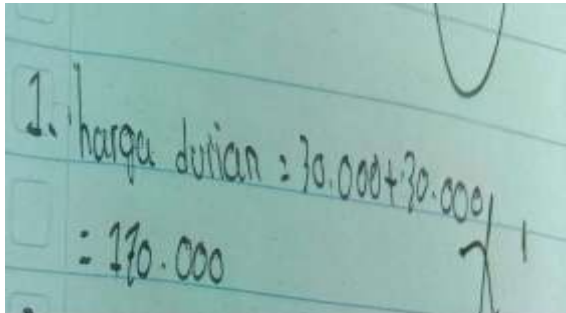 1. harga durian = 30.000+30.000
= 170.000